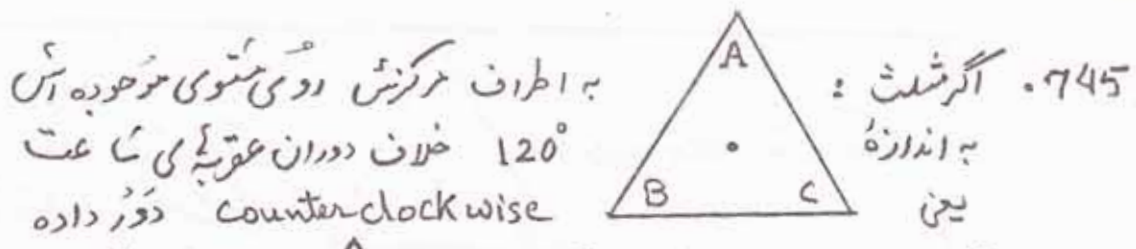 745. اگر مثلث : A به اطراف مرکزش روی مستوی موجوده اش
به اندازهٔ 120° خلاف دوران عقربه های ساعت
یعنی B C counter clockwise دَور داده